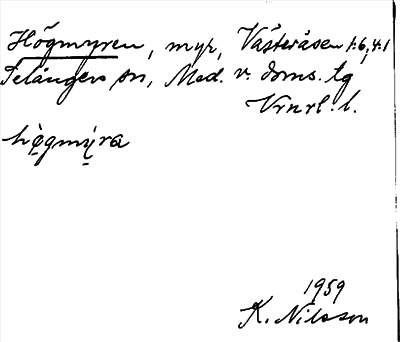 Högmyren, myr, Västeråsen 1:6, 4:1
Selångers sn, Med. v. doms. tg
Vrnrl. l.
hø̀gmýra
1959
K. Nilsson